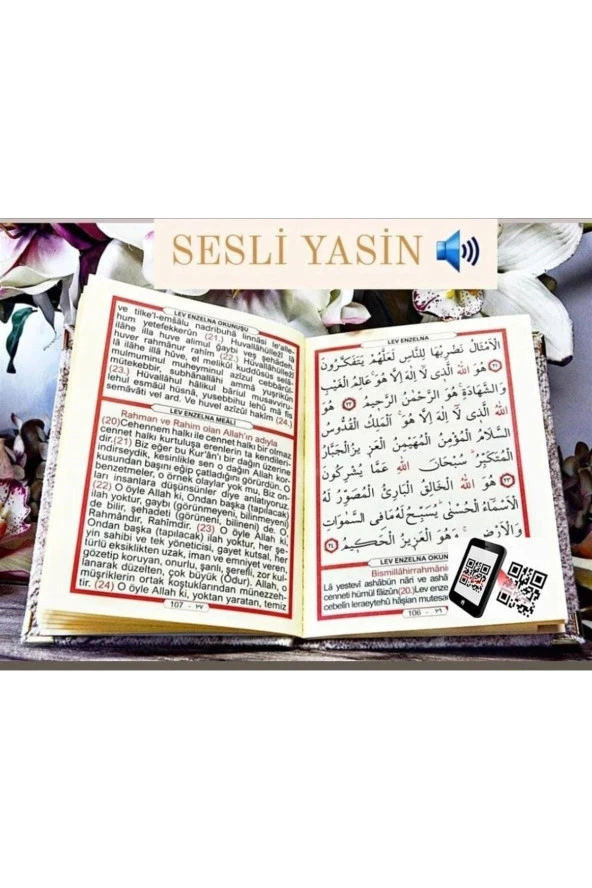 SESLİ YASİN
LEV ENZELNA OKUNUŞU
ve tilke'l-emsâlu nadribuhâ linnâsi le'alle-
hum yetefekkerûn (21.) Huvallâhullezî lâ
ilâhe illâ huve alimul gaybi veş şehâdeh,
huver rahmânur rahîm (22.) Hüvallâhüllezî
lâ ilâhe illâ hûve, el melikul kuddûsüs selâ-
mulmuminul muheyminul azîzul cebbârûl-
mütekebbir, subhânallâhi ammâ yuşrikûn
(23.) Hüvallahul hâlikul bâriul musavviru-
lehul esmâül hüsnâ, yusebbihu lehû mâ fis
semâvâti vel ard. Ve huvel azîzûl hakîm (24.)
LEV ENZELNA MEÂLİ
Rahman ve Rahim olan Allah'ın adıyla
(20)Cehennem halkı ile cennet halkı bir olmaz
cennet halkı kurtuluşa erenlerin ta kendileri-
dir.(21) Biz eğer bu Kur'ân'ı bir dağın üzerine
indirseydik, kesinlikle sen o dağın Allah kor-
kusundan başını eğip çatladığını görürdün. O
benzetmeler, o örnek olaylar yok mu, Biz on-
ları insanlara düşünsünler diye anlatıyoruz.
(22) O öyle Allah ki, Ondan başka (tapılacak)
ilah yoktur, gaybı (görünmeyeni, bilinmeyeni)
de bilir, şehadeti (görüneni, bilineni) de. O,
Rahmândır, Rahîmdir. (23) O öyle Allah ki,
Ondan başka (tapılacak) ilah yoktur, her şe-
yin sahibi ve tek yöneticisi, gayet kutsal, her
türlü eksiklikten uzak, iman ve emniyet veren,
gözetip koruyan, onurlu, şanlı, şerefli, zor kul-
lanarak düzelten, çok büyük (Odur). Allah, o
müşriklerin ortak koştuklarından münezzeh-
tir. (24) O öyle Allah ki, yoktan yaratan, temiz
107 - ١٠٧
LEV ENZELNA
الْاَمْثَالُ نَضْرِبُهَا لِلنَّاسِ لَعَلَّهُمْ يَتَفَكَّرُونَ
﴿٢١﴾ هُوَ اللّٰهُ الَّذِى لَا اِلٰهَ اِلَّا هُوَ عَالِمُ الْغَيْبِ
وَالشَّهَادَةِ هُوَ الرَّحْمٰنُ الرَّحِيمُ ﴿٢٢﴾ هُوَ
اللّٰهُ الَّذِى لَا اِلٰهَ اِلَّا هُوَ اَلْمَلِكُ الْقُدُّوسُ
السَّلَامُ الْمُؤْمِنُ الْمُهَيْمِنُ الْعَزِيزُ الْجَبَّارُ
الْمُتَكَبِّرُ سُبْحَانَ اللّٰهِ عَمَّا يُشْرِكُونَ
﴿٢٣﴾ هُوَ اللّٰهُ الْخَالِقُ الْبَارِئُ الْمُصَوِّرُ لَهُ
الْاَسْمَاءُ الْحُسْنٰى يُسَبِّحُ لَهُ مَا فِى السَّمٰوَاتِ
وَالْاَرْضِ وَهُوَ الْعَزِيزُ الْحَكِيمُ ﴿٢٤﴾
LEV ENZELNA OKUN
Bismillâhirrahmâni
Lâ yestevî ashâbün nâri ve ashâ
cenneti hümül fâizûn(20.)Lev enze
cebelin leraeytehû hâşian mutesa
106 - ١٠٦